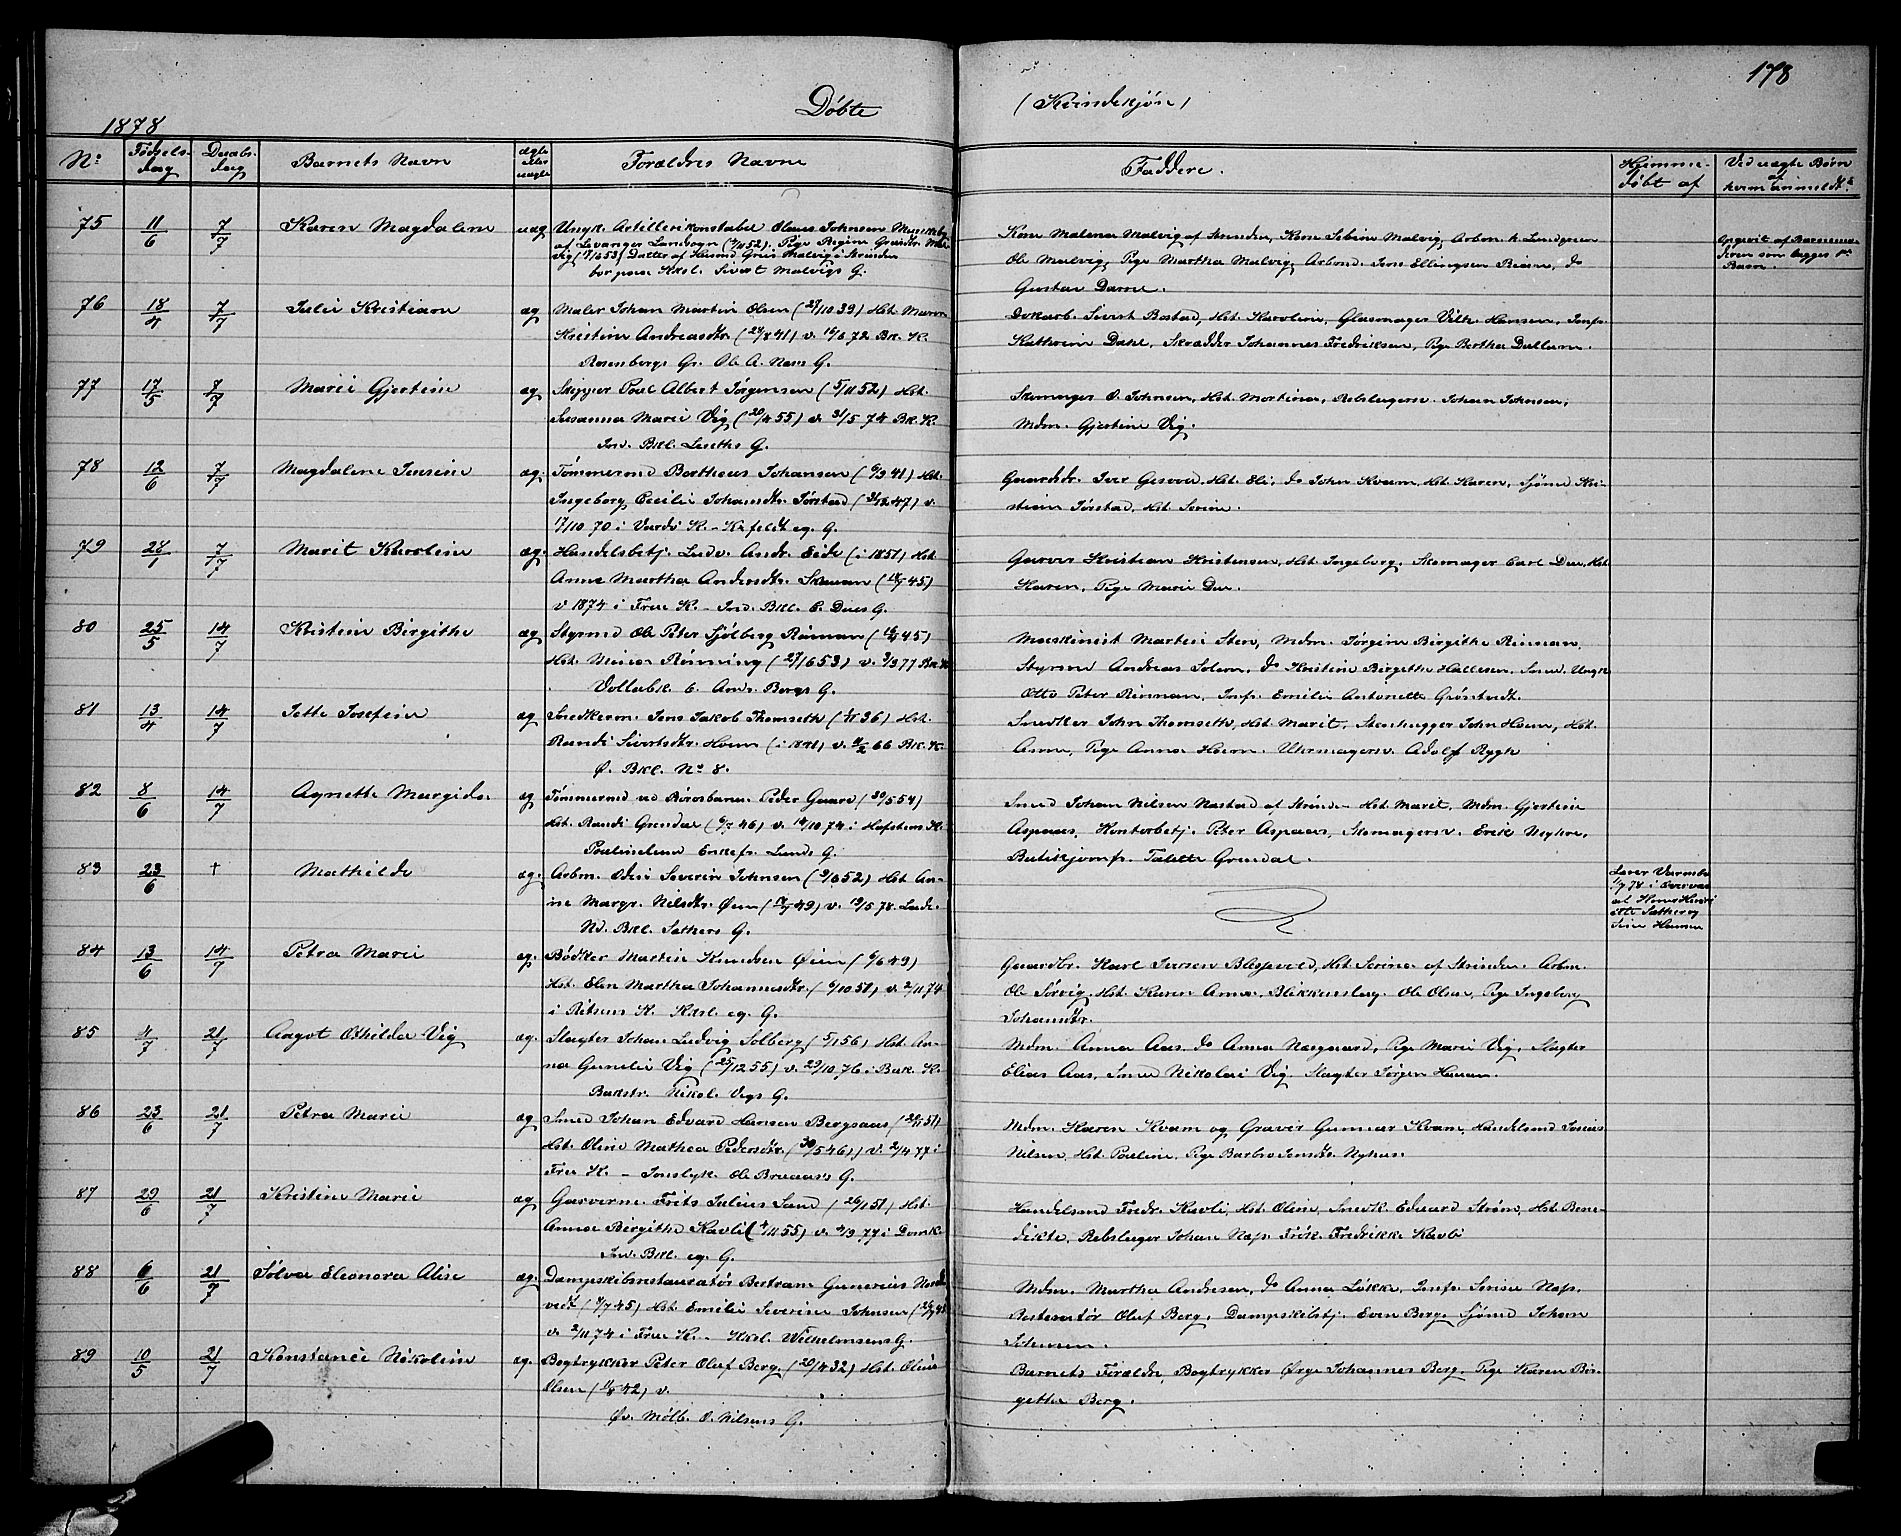 178
Døbte (Kvindekjøn)
1878
No Fødsels- dag Daabs- dag Barnets Navn ægte eller uægte Forældres Navne Faddere. Hjemme- døbt af Ved uægte Børn af hvem anmeldt.
75 11/6 7/7 Karen Magdalene uæg Ungk. Artillerikonstabel Olaus Johnsen
af Levanger Landsogn Pige Regine
vig Datter af Husmd Malvig i Strinden
Sivert Malvigs G.
Kone Malena Malvig af Strinden, Kone Sebine Malvig, Arbm.
Ole Malvig, Pige Martha Malvig, Arbmd. Jens Ellingsen do
Gustav
Opgivet af Barnemo-
deren som
Barn.
76 18/4 7/7 Julie Kristiane æg Maler Johan Martin Olsen (27/10 39) Hst. Maren
Kristine Andreasdtr. (24/8 41) v. 16/6 72 Bk. K.
Rosenborgs Gr. Ole A. Næss G.
Sivert Bostad, Hst. Karoline, Glasmager Vilh. Hansen, Jomfr.
Kathrine Dahl, Skrædder Johannes Fredriksen, Pige Bertha Dullum.
77 17/5 7/7 Marie Gjertine æg Skipper Poul Albert Jørgensen (5/11 52) Hst.
Susanna Marie Vig (20/4 55) v. 31/5 74 Bk. K.
Ind. Bkl. G.
Skomager O. Johnsen, Hst. Martina, Rebslagersv. Johan Johnsen,
Mdm. Gjertine Vig.
78 12/6 7/7 Magdalene Jensine æg. Tømmermd Bertheus Johansen (6/9 41) Hst.
Ingeborg Cecilie Johannsdtr. Jørstad (31/12 47) v.
17/10 70 i Vardø K. - eg. G.
Gaardbr. Iver Hst. Eli, do John Kvam, Hst. Karen, Sjømd Kri-
stian Jørstad, Hst. Serine.
79 7/7 Marit Karoline æg. Handelsbetj. Ludv. Andr. Eide (i 1851) Hst.
Anne Martha Andersdtr. Skauan
v 1874 i Frue K. - Ind. Bkl. E. Dues G.
Garver Kristian Kristensen, Hst. Ingeborg, Skomager Carl Due, Hst.
Karen, Pige Marie Due.
80 25/5 14/7 Kristine Birgithe æg Styrmd Ole Peter Sjølberg Rinnan
Hst. Rønning (27/6 53) v. 3/9 77 Bk. K
Vollabk. C. And. Bergs G.
Maskinist Martin Sten, Mdm. Jørgine Birgithe Rinnan,
Styrm Andreas Solem, do Kristine Birgitte Hallesen, Smed Ungk
Otto Peter Rinnan, Jomfr. Emilie Antonette
81 13/4 14/7 Jette Josefine æg Snedkerm. Jens Jakob Thomseth Hst.
Randi Sivertsdtr. Hoem v. 66 Bk. K.
Ø. Bkl. No 8.
Snedker John Thomseth, Hst. Marit, Stenhugger John Hoem, Hst.
Anne, Pige Anna Hoem. Uhrmagersv. Adolf Rygh
82 8/6 14/7 Agnette Margido. æg Tømmermd ved Rørosbanen Peder Gaare (30/5 54)
Hst. Randi Grendal (6/7 46) v. 14/10 74 i Hafstens K.
Enkefr. Lunds G.
Smed Johan Nilsen Nastad af Strinde - Hst. Marit, Mdm. Gjertine
Aspaas, Kontorbetj. Peter Aspaas, Skomagersv. Erik
Butikjomfr. Grendal.
83 23/6 + Mathilde æg. Arbm. Odin Severin Johnsen (9/6 52) Hst. An-
ne Margr. Nilsdtr. Øien v. 19/5 78. Lade.
Nd. Bkl. Sathers G.
1/7 78 i Overvær
af
Sather og
Hansen
84 13/6 14/7 Petra Marie æg. Bødker Martin Knudsen Øien (6/6 49)
Hst. Elen Martha Johannesdtr. (6/10 51) v. 2/11 74
i K. eg. G.
Gaardbr. Karl Iversen Hst. Serine af Strinden. Arbm.
Ole Sørvig, Hst. Karen Anna, Blikkenslag. Ole Olsen, Pige Ingeborg
Johansdtr.
85 4/7 21/7 Aagot Othilda Vig æg. Slagter Johan Ludvig Solberg (5/1 56) Hst. An-
na Gunelie Vig (25/12 55) v. 29/10 76 i Bak. K.
Bakstr. Nikol. Vigs G.
Mdm. Anna Aas, do Anna Nærgaard, Pige Marie Vig, Slagter
Elias Aas, Smed Nikolai Vig, Slagter Jørgen
86 23/6 21/7 Petra Marie æg Smed Johan Edvard Hansen Bergsaas
Hst. Oline Mathea Pedersdtr. (30/5 46) v. 2/4 77 i
Frue K. - Ole Bruaas's G.
Mdm. Karen Kvam og Gravør Gunnar Kvam, Handelsmd Josias
Nilsen, Hst. Pauline, Pige Barbro Jensdtr. Nyhus.
87 29/6 21/7 Kristine Marie æg Garverm. Frits Julius Sand (26/1 51) Hst.
Anna Birgithe Kavli v. i Domk.
Ind. Bkl. eg. G.
Handelsmd Fredr. Kavli, Hst. Oline, Snedk. Edvard Strøm, Hst. Bene-
dikte, Rebslager Johan Næss, Frøk. Fredrikke Kavli
88 6/6 21/7 Solva Eleonora Alise æg. Dampskibsrestauratør Bertram Gunerius
vedt (7/7 45) Hst. Emilie Severine Johnsen
v. 2/11 74 i Frue K. - Wilhelmsens G.
Mdm. Martha Andresen, do Anna Løkke, Jomfr. Næss,
Restauratør Oluf Berg, Dampskibsbtj. Even Berg, Sjømd Johan
89 10/5 21/7 Konstance Nikoline æg. Bogtrykker Peter Oluf Berg (20/4 32) Hst. Oline
Olsen v.
Øv. Mølb. O. Nilsens G.
Barnets Forældre, Bogtrykker Ørge Johannes Berg, Pige Karen Bir-
githa Berg.